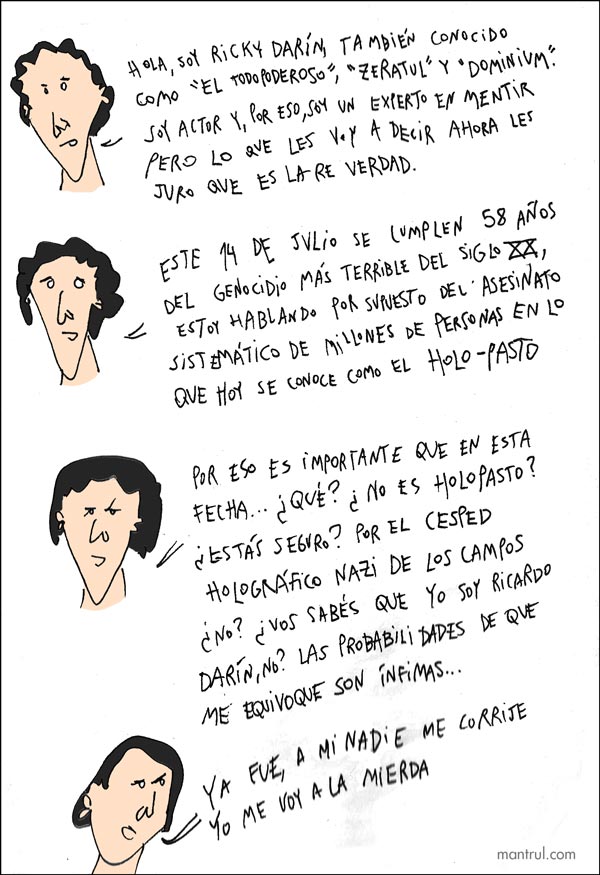 HOLA, SOY RICKY DARÍN, TAMBIÉN CONOCIDO
COMO "EL TODOPODEROSO", "ZERATUL" Y "DOMINIUM".
SOY ACTOR Y, POR ESO, SOY UN EXPERTO EN MENTIR
PERO LO QUE LES VOY A DECIR AHORA LES
JURO QUE ES LA RE VERDAD.
ESTE 14 DE JULIO SE CUMPLEN 58 AÑOS
DEL GENOCIDIO MÁS TERRIBLE DEL SIGLO XX,
ESTOY HABLANDO POR SUPUESTO DEL ASESINATO
SISTEMÁTICO DE MILLONES DE PERSONAS EN LO
QUE HOY SE CONOCE COMO EL HOLO-PASTO
POR ESO ES IMPORTANTE QUE EN ESTA
FECHA... ¿QUÉ? ¿NO ES HOLOPASTO?
¿ESTÁS SEGURO? POR EL CESPED
HOLOGRÁFICO NAZI DE LOS CAMPOS
¿NO? ¿VOS SABÉS QUE YO SOY RICARDO
DARÍN, NO? LAS PROBABILIDADES DE QUE
ME EQUIVOQUE SON ÍNFIMAS...
YA FUÉ, A MI NADIE ME CORRIJE
YO ME VOY A LA MIERDA
mantrul.com